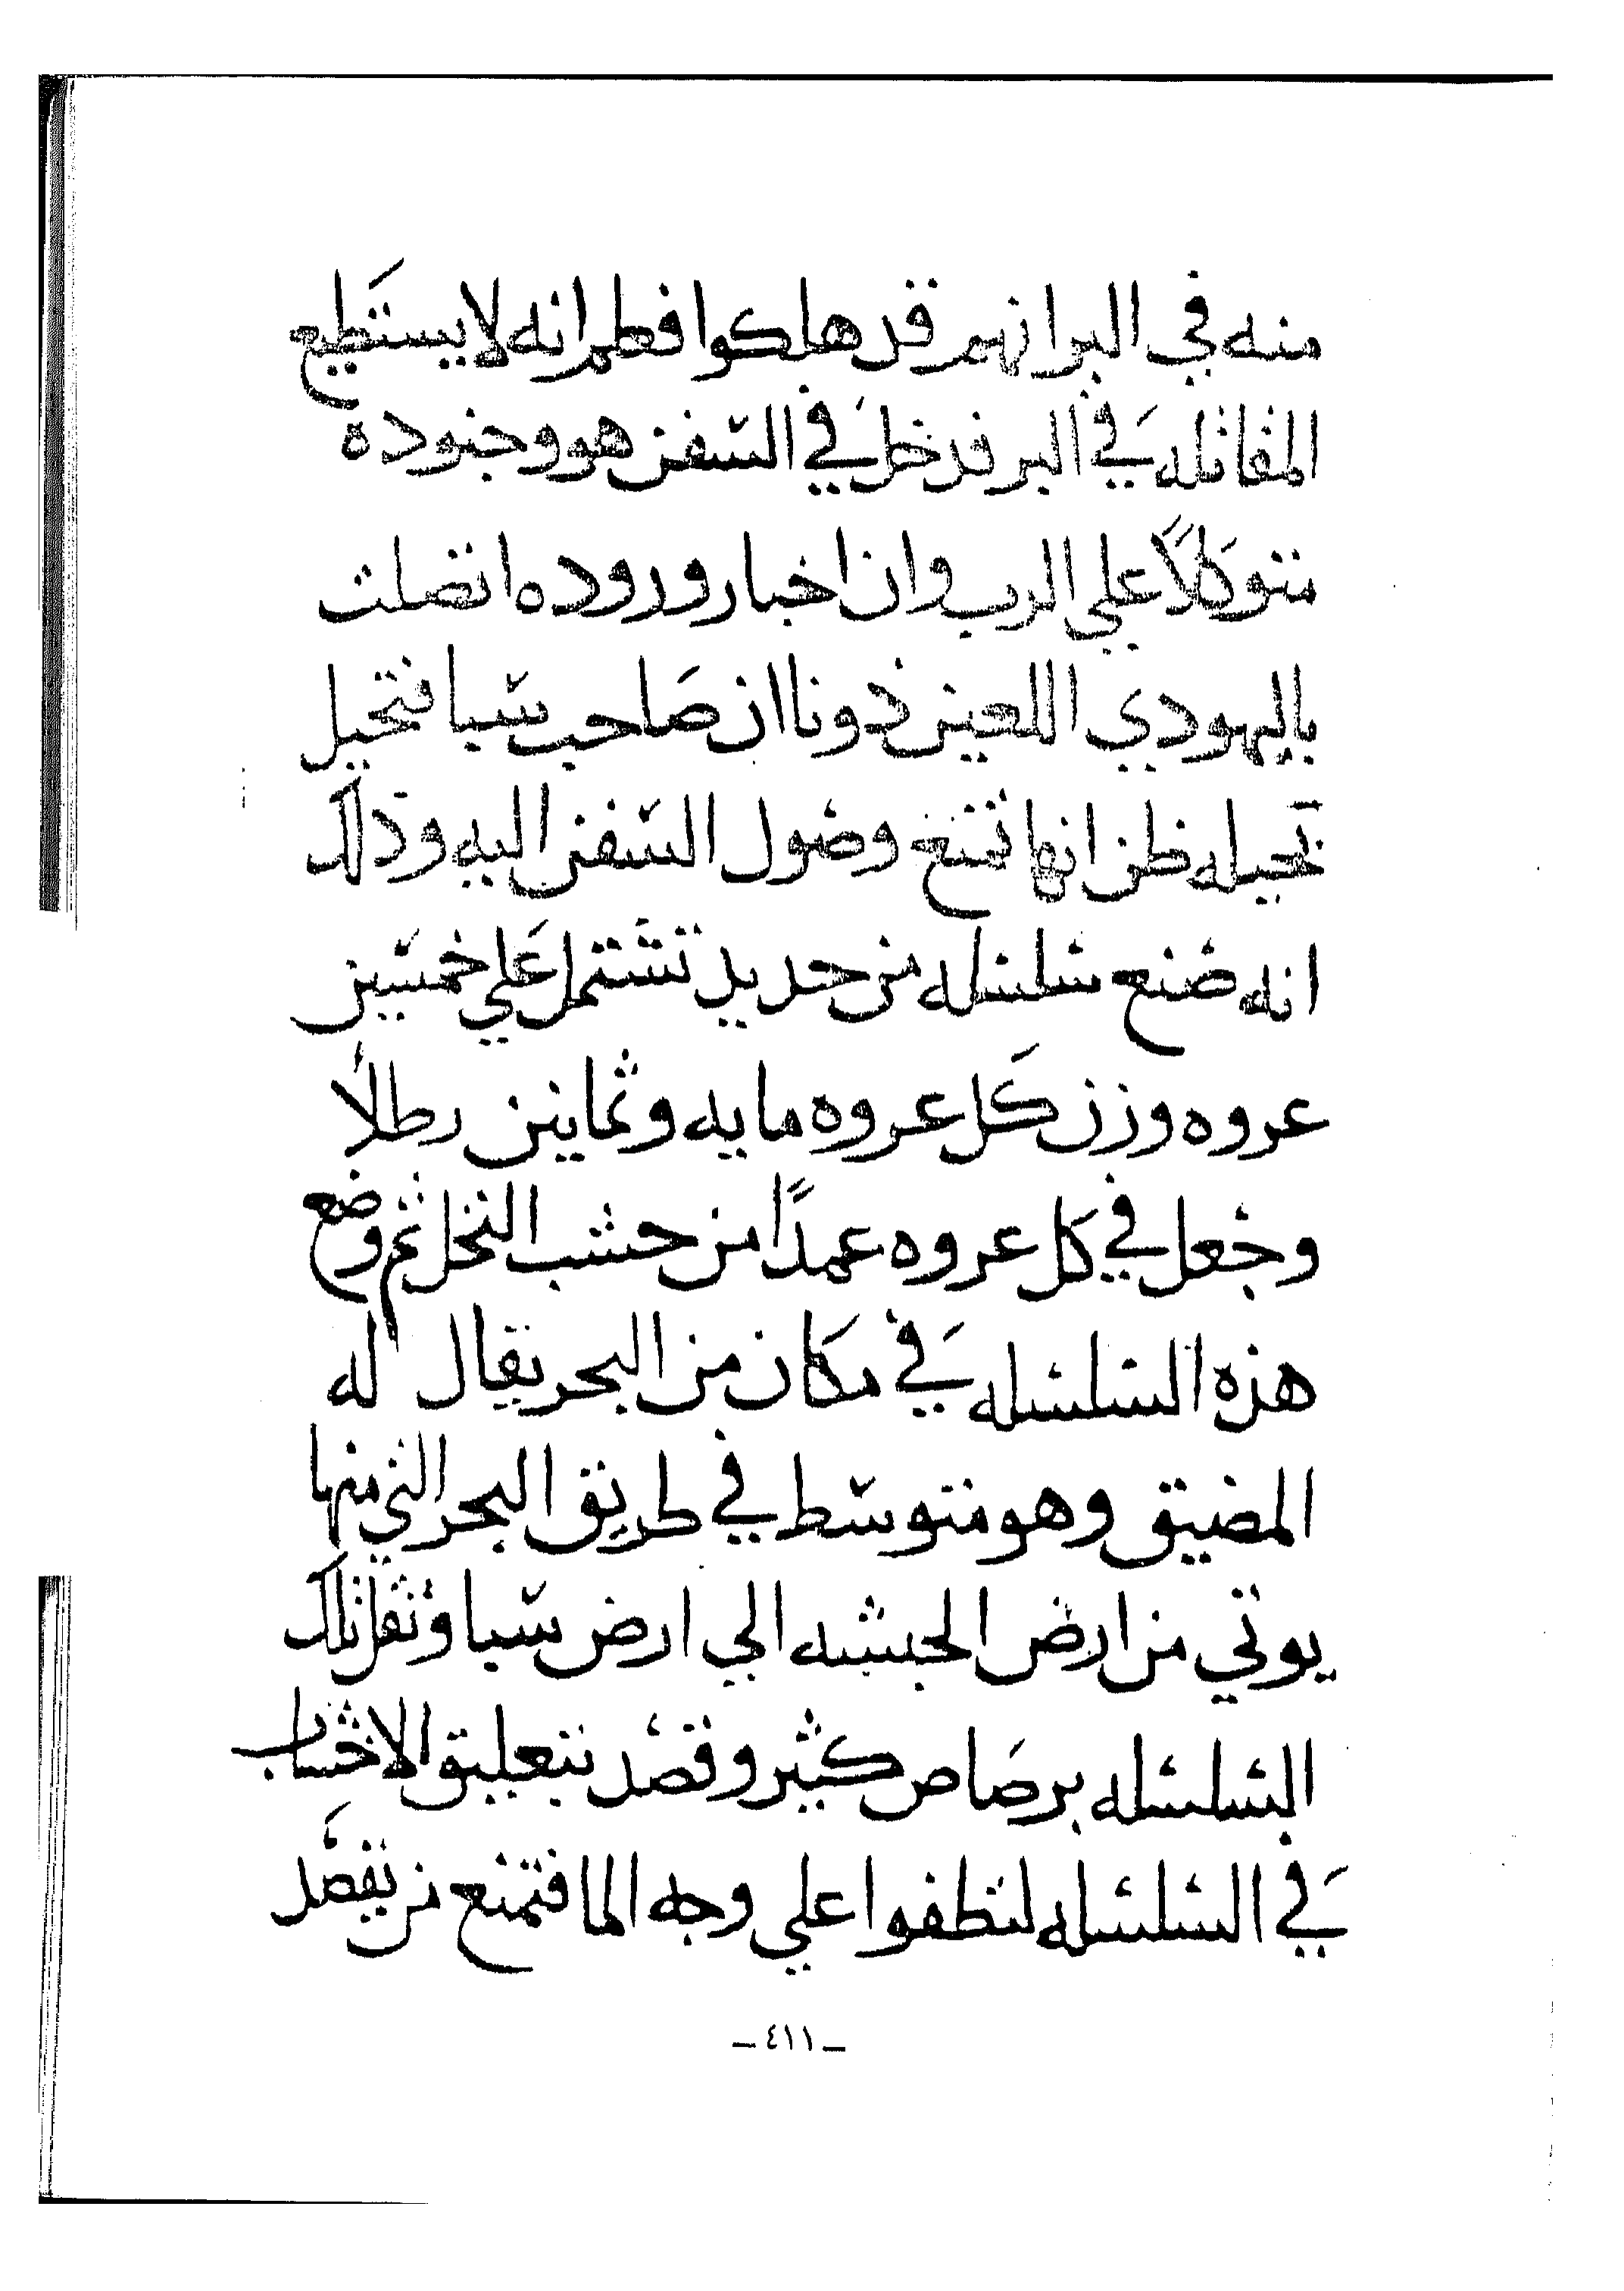 منه في البر انهم قد هلكوا فطم انه لا يستطيع
المقاتله في البر فدخل في السفن هو وجنوده
متوكلاً علي الرب وان اخبار وروده اتصلت
باليهودي اللعين ذونا ان صاحب سبا فتحيل
بحيله ظن انها تمنع وصول السفن اليه وذلك
انه صنع سلسله من حديد تشتمل علي خمسين
عروه وزن كل عروه مايه وثمانين رطلاً
وجعل في كل عروه عمدًا من حشب النخل ثم وضع
هذه السلسله في مكان من البحر يقال له
المضيق وهو متوسط في طريق البحر التي منها
يوتي من ارض الحبشه الي ارض سبا وثقل تلك
السلسله برصاص كثير وقصد بتعليق الاخشاب
في السلسله لتطفوا علي وجه الما فتمنع من يقصد
– ٤١١ –